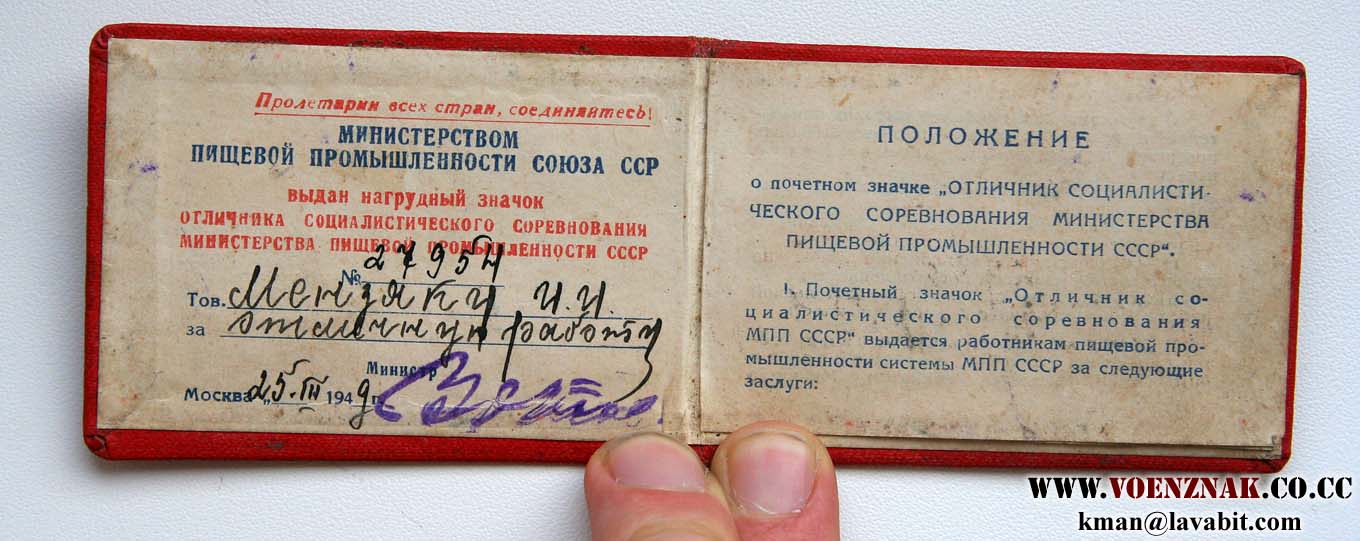 Пролетарии всех стран, соединяйтесь!
МИНИСТЕРСТВОМ
ПИЩЕВОЙ ПРОМЫШЛЕННОСТИ СОЮЗА ССР
ВЫДАН НАГРУДНЫЙ ЗНАЧОК
ОТЛИЧНИКА СОЦИАЛИСТИЧЕСКОГО СОРЕВНОВАНИЯ
МИНИСТЕРСТВА ПИЩЕВОЙ ПРОМЫШЛЕННОСТИ СССР
№ 27954
Тов. И.И.
за отличную работу
Министр
Москва „25.III 1949 г.
ПОЛОЖЕНИЕ
о почетном значке „ОТЛИЧНИК СОЦИАЛИСТИ-
ЧЕСКОГО СОРЕВНОВАНИЯ МИНИСТЕРСТВА
ПИЩЕВОЙ ПРОМЫШЛЕННОСТИ СССР“.
1. Почетный значок „Отличник со-
циалистического соревнования
МПП СССР“ выдается работникам пищевой про-
мышленности системы МПП СССР за следующие
заслуги:
WWW.VOENZNAK.CO.CC
kman@lavabit.com